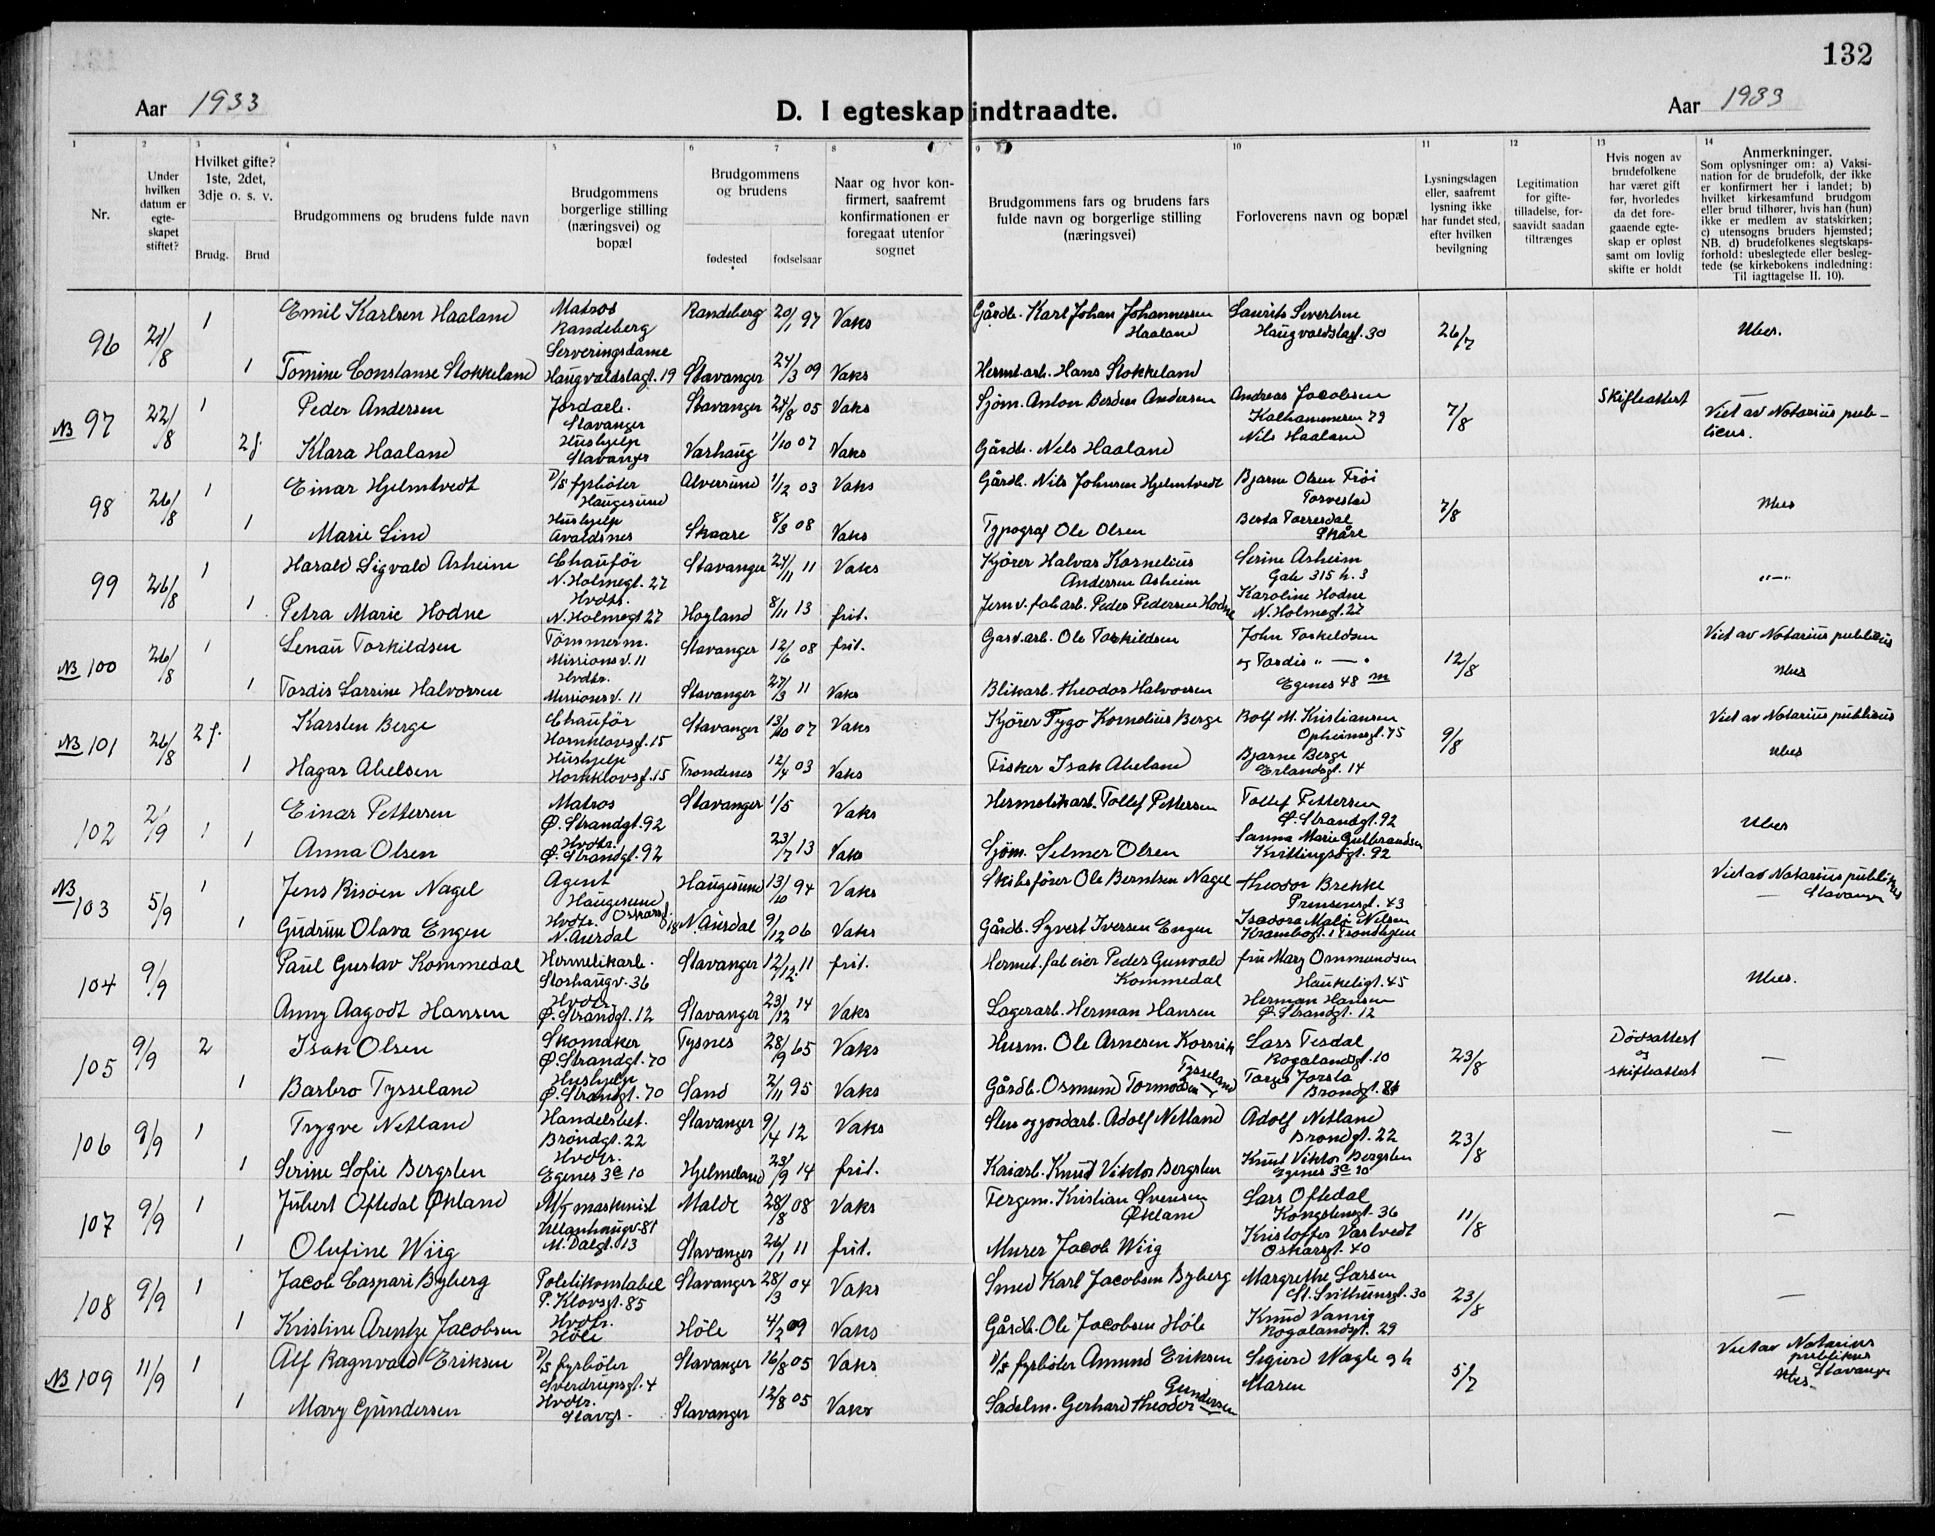 132
Aar 1933
D. I egteskap indtraadte.
Aar 1933
1 2 3 4 5 6 7 8 9 10 11 12 13 14
Nr.
Under hvilken datum er egte-skapet stiftet?
Hvilket gifte? 1ste, 2det, 3dje o. s. v.
Brudg. Brud
Brudgommens og brudens fulde navn
Brudgommens borgerlige stilling (næringsvei) og bopæl
Brudgommens og brudens
fødested fødselsaar
Naar og hvor kon-firmert, saafremt konfirmationen er foregaat utenfor sognet
Brudgommens fars og brudens fars fulde navn og borgerlige stilling (næringsvei)
Forloverens navn og bopæl
Lysningsdagen eller, saafremt lysning ikke har fundet sted, efter hvilken bevilgning
Legitimation for gifte-tilladelse, for-saavidt saadan tiltrænges
Hvis nogen av brudefolkene har været gift før, hvorledes da det fore-gaaende egte-skap er opløst samt om lovlig skifte er holdt
Anmerkninger.
Som oplysninger om: a) Vaksi-nation for de brudefolk, der ikke er konfirmert her i landet; b) hvilket kirkesamfund brudgom eller brud tilhører, hvis han (hun) ikke er medlem av statskirken; c) utensogns bruders hjemsted; NB. d) brudefolkenes slegtskaps-forhold: ubeslegtede eller besleg-tede (se kirkebokens indledning: Til iagttagelse II. 10).
96 21/8 1 Emil Karlsen Haaland Matros Randeberg Randeberg 20/1 97 Vaks Gårdb. Karl Johan Johannessen Haaland Laurits Sivertsen Haugvaldstagt. 30 26/7 Ubes.
1 Tomine Constanse Stokkeland Serveringsdame Haugvaldstagt. 19 Stavanger 24/3 09 Vaks Hermt.arb. Hans Stokkeland
NB 97 22/8 1 Peder Andersen Jordarb. Stavanger Stavanger 24/8 05 Vaks Sjøm. Anton Andersen Andreas Jacobsen Kalhammeren 79 7/8 Skifteattest Viet av Notarius pub-licus.
2 f. Klara Haaland Hushjelp Stavanger Varhaug 1/10 07 Vaks Gårdb. Nils Haaland Nils Haaland
98 26/8 1 Einar Hjelmtvedt D/S fyrbøter Haugesund Alversund 1/12 03 Vaks Gårdb. Nils Johnsen Hjelmtvedt Bjarne Olsen Frøi Torvestad 7/8 Ubes
1 Marie Lind Hushjelp Avaldsnes Skaare 8/3 08 Vaks Typograf Ole Olsen Berta Torresdal Skåre
99 26/8 1 Harald Sigvald Asheim Chauffør N. Holmegt. 27 Stavanger 24/11 11 Vaks Kjører Halvar Kornelius Andersen Asheim Serine Asheim Gate 315 h. 3 "—"
1 Petra Marie Hodne Hvdtr. N. Holmegt 27 Høyland 8/11 13 frit. Jernv. fab arb. Peder Pedersen Hodne Karoline Hodne N. Holmegt. 27
NB 100 26/8 1 Lenau Torkildsen Tømmerm. Missionsv. 11 Stavanger 12/6 08 frit. Gasv.arb. Ole Torkildsen John Torkeldsen og Tordis " — " Egenes 48 m 12/8 Viet av Notarius publicus Ubes
1 Tordis Larsine Halvorsen Hvdtr. Missionsv. 11 Stavanger 27/3 11 Vaks Blikarb. Theodor Halvorsen
NB 101 26/8 2 f. Karsten Berge Chauffør Hornklovsgt. 15 Stavanger 13/10 07 Vaks Kjører Tygo Kornelius Berge Rolf M. Kristiansen Opheimsgt. 75 9/8 Viet av Notarius publicus Ubes
1 Hagar Abelsen Hushjelp Hornklovsgt. 15 Trondenes 12/4 03 Vaks Fisker Isak Abeland Bjarne Berge Erlandsgt. 14
102 2/9 1 Einar Pettersen Matros Ø. Strandgt. 92 Stavanger 1/5 Vaks Hermetikarb. Tollef Pettersen Tollef Pettersen Ø. Strandgt. 92 Ubes
1 Anna Olsen Hvdtr. Ø. Strandgt. 92 23/7 13 Vaks Sjøm. Selmer Olsen Sanna Marie Gulbrandsen 92
NB 103 5/9 1 Jens Risøen Nagel Agent Haugesund Haugesund 13/10 94 Vaks Skibsfører Ole Berntsen Nagel Theodor Brekke Prinsensgt. 43 Viet av Notarius publikus — Stavanger
1 Gudrun Olava Engen Hvdtr. N. Aurdal N. Aurdal 9/12 06 Vaks Gårdb. Syvert Iversen Engen Isadora Malø Nilsen Krambogt. 1 Trondhjem
104 9/9 Paul Gustav Kommedal Hermetikarb. Storhaugv. 36 Stavanger 12/12 11 frit. Hermet. fab eier Peder Gunvald Kommedal fru Mary Ommundsen Haukeligt. 45 Ubes.
Anny Aagodt Hansen Hvdtr. Ø. Strandgt. 12 Stavanger 23/12 14 Vaks Lagerarb. Herman Hansen Herman Hansen Ø. Strandgt. 12
105 9/9 2 Isak Olsen Skomaker Ø. Strandgt. 70 Tysnes 28/9 65 Vaks Husm. Ole Arnesen Korsvik Lars Tesdal Rogalandsgt. 10 23/8 Dødsattest og skifteattest —
1 Barbro Tysseland Hushjelp Ø. Strandgt. 70 Sand 2/11 95 Vaks Gårdb. Osmund Tormodsen Tysseland Brøndgt. 84
106 9/9 1 Trygve Netland Handelsbet. Brøndgt. 22 Stavanger 9/4 12 Vaks Sten og jordarb. Adolf Netland Adolf Netland Brøndgt. 22 23/8 —
1 Serine Sofie Bergsten Hvdtr. Egenes 3c 10 Hjelmeland 23/9 14 frit. Kaiarb. Knud Viktor Bergsten Knut Viktor Bergsten Egenes 3c 10
107 9/9 1 Jubert Oftedal Økland M/S maskinist Vallandhaugv. 81 Malde 28/8 08 Vaks Fergem. Kristian Svensen Økland Lars Oftedal Kongstensgt. 36 11/8 —
1 Olufine Wiig M. Dalgt. 13 Stavanger 26/1 11 frit. Murer Jacob Wiig Kristoffer Vastvedt Oskarsgt. 40
108 9/9 1 Jacob Caspari Byberg Politikonstabel P. Klovsgt. 85 Stavanger 28/3 04 Vaks Smed Karl Jacobsen Byberg Margrethe Larsen St. Svithunsgt. 30 23/8 —
1 Kristine Arentze Jacobsen Hvdtr. Høle Høle 4/2 09 Vaks Gårdb. Ole Jacobsen Høle Knud Vannig Rogalandsgt. 29
NB 109 11/9 1 Alf Ragnvald Eriksen D/S fyrbøter Sverdrupsgt. 4 Stavanger 16/8 05 Vaks D/S fyrbøter Amund Eriksen Sigurd Wagle og h Maren 5/7 Viet av Notarius publikus Stavanger Ubes.
1 Mary Gundersen Hvdtr. Stavgr. Stavanger 12/8 05 Vaks Sadelm. Gerhard Theodor Gundersen